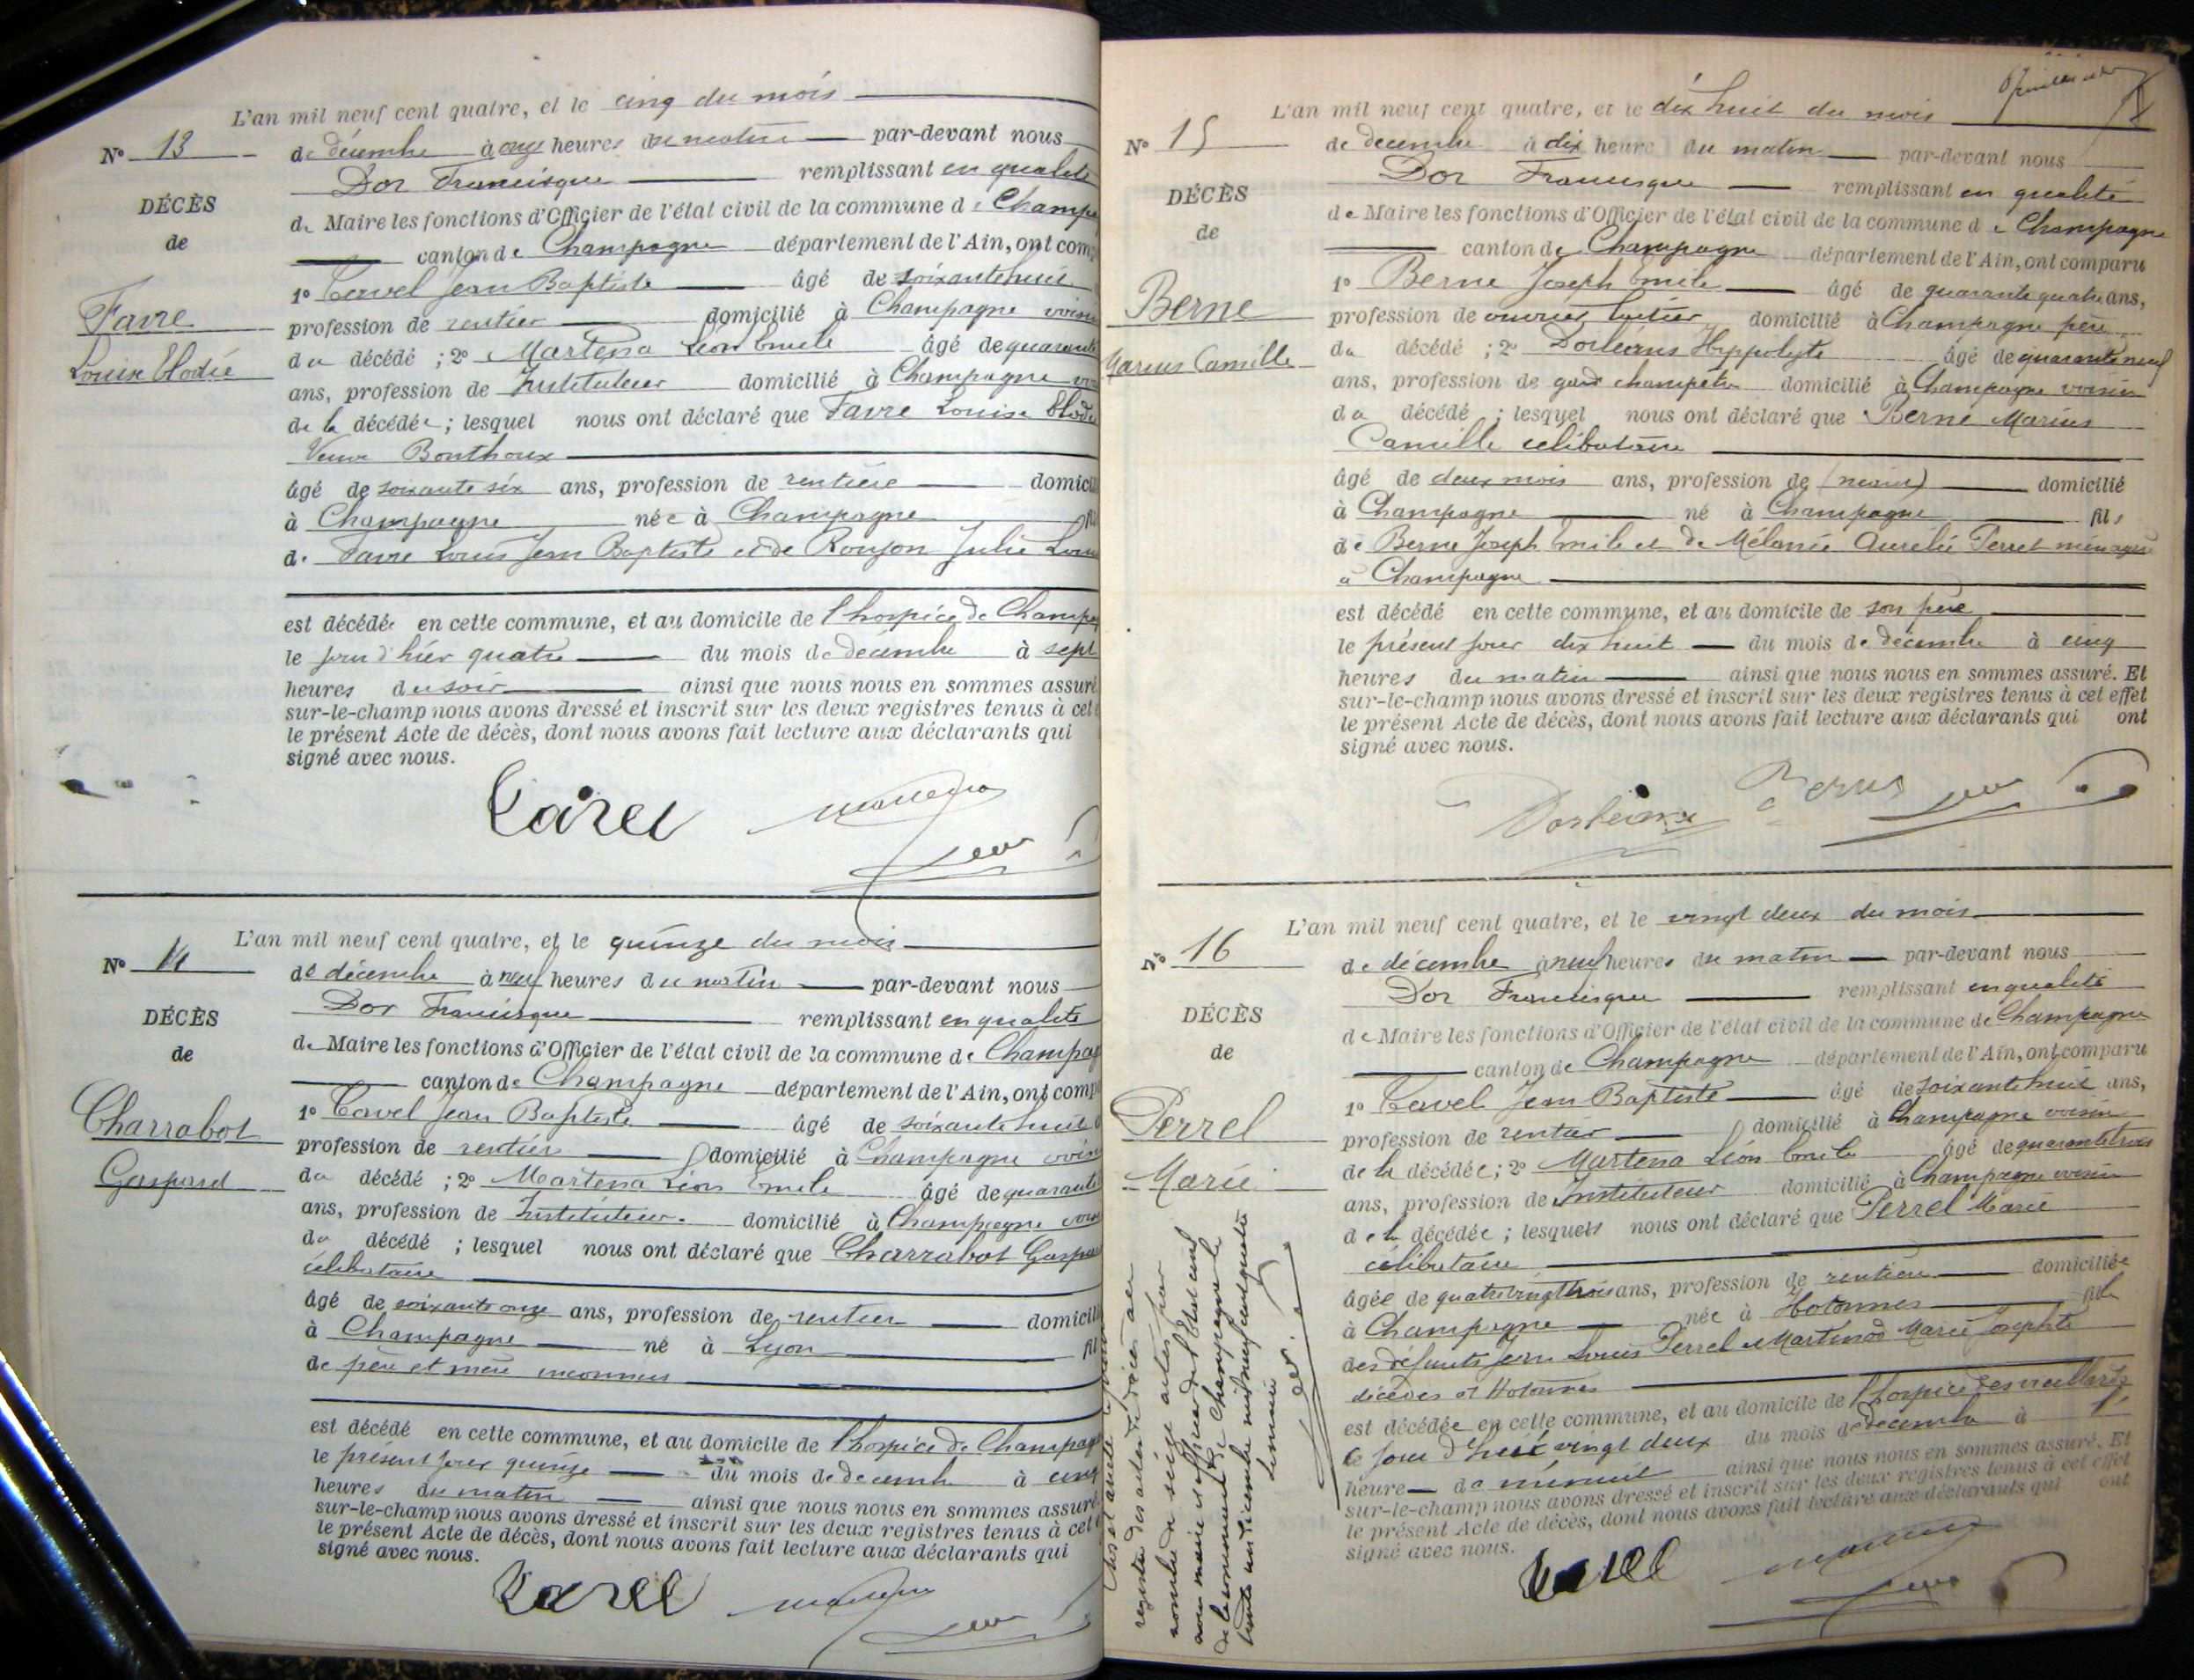 L'an mil neuf cent quatre, et le cinq du mois
N° 13
de décembre à onze heures du matin par-devant nous
Dor Francisque remplissant en qualité
DÉCÈS
de Maire les fonctions d'Officier de l'état civil de la commune de Champa
de
canton de Champagne département de l'Ain, ont com
1° Carrel Jean Baptiste âgé de soixante huit
Favre
profession de rentier domicilié à Champagne voisin
du décédé ; 2° Martena Léon Emile âgé de quarante
Louise Elodie
ans, profession de Instituteur domicilié à Champagne
de la décédée ; lesquel nous ont déclaré que Favre Louise Elodie
Veuve Bonthoux
âgé de soixante six ans, profession de rentière domicil
à Champagne née à Champagne
de Favre Louis Jean Baptiste et de Roujon Julie
est décédée en cette commune, et au domicile de l'hospice de Champag
le jour d'hier quatre du mois de décembre à sept
heures du soir ainsi que nous nous en sommes assuré
sur-le-champ nous avons dressé et inscrit sur les deux registres tenus à cet
le présent Acte de décès, dont nous avons fait lecture aux déclarants qui
signé avec nous.
L'an mil neuf cent quatre, et le quinze du mois
N° 14
de décembre à neuf heures du matin par-devant nous
Dor Francisque remplissant en qualité
DÉCÈS
de Maire les fonctions d'Officier de l'état civil de la commune de Champag
de
canton de Champagne département de l'Ain, ont comp
1° Carrel Jean Baptiste âgé de soixante huit
Charrabot
profession de rentier domicilié à Champagne voisin
Gaspard
du décédé ; 2° Martena Léon Emile âgé de quarante
ans, profession de Instituteur. domicilié à Champagne
du décédé ; lesquel nous ont déclaré que Charrabot Gaspard
célibataire
âgé de soixante onze ans, profession de rentier domicili
à Champagne né à Lyon fil
de père et mère inconnus
est décédé en cette commune, et au domicile de l'hospice de Champag
le présent jour quinze du mois de décembre à cinq
heures du matin ainsi que nous nous en sommes assuré
sur-le-champ nous avons dressé et inscrit sur les deux registres tenus à cet
le présent Acte de décès, dont nous avons fait lecture aux déclarants qui
signé avec nous.
L'an mil neuf cent quatre, et le dix huit du mois
N° 15
de décembre à dix heure du matin par-devant nous
Dor Francisque remplissant en qualité
DÉCÈS
de Maire les fonctions d'Officier de l'état civil de la commune de Champagne
de
canton de Champagne département de l'Ain, ont comparu
1° Berne Joseph Emile âgé de quarante quatre ans,
Berne
profession de ouvrier domicilié à Champagne père
du décédé ; 2° Dorléans Hyppolyte âgé de quarante neuf
Marius Camille
ans, profession de garde champêtre domicilié à Champagne voisin
du décédé ; lesquel nous ont déclaré que Berne Marius
Camille célibataire
âgé de deux mois ans, profession de (néant) domicilié
à Champagne né à Champagne fils
de Berne Joseph Emile et de Mélanie Aurélie Perret ménagère
à Champagne
est décédé en cette commune, et au domicile de son père
le présent jour dix huit du mois de décembre à cinq
heures du matin ainsi que nous nous en sommes assuré. Et
sur-le-champ nous avons dressé et inscrit sur les deux registres tenus à cet effet
le présent Acte de décès, dont nous avons fait lecture aux déclarants qui ont
signé avec nous.
Dorléans Berne
L'an mil neuf cent quatre, et le vingt deux du mois
N° 16
de décembre à neuf heures du matin par-devant nous
Dor Francisque remplissant en qualité
DÉCÈS
de Maire les fonctions d'Officier de l'état civil de la commune de Champagne
de
canton de Champagne département de l'Ain, ont comparu
1° Carrel Jean Baptiste âgé de soixante huit ans,
Perrel
profession de rentier domicilié à Champagne voisin
de la décédée ; 2° Martena Léon Emile âgé de quarante trois
Marie
ans, profession de Instituteur domicilié à Champagne voisin
de la décédée ; lesquels nous ont déclaré que Perrel Marie
célibataire
âgée de quatre vingt trois ans, profession de rentière domiciliée
à Champagne née à Hotonnes fille
des défunts Jean Louis Perrel et Martinod Marie Josephte
décédés à Hotonnes
est décédée en cette commune, et au domicile de l'hospice des vieillards
le jour d'hui vingt deux du mois de décembre à
heure de minuit ainsi que nous nous en sommes assuré. Et
sur-le-champ nous avons dressé et inscrit sur les deux registres tenus à cet effet
le présent Acte de décès, dont nous avons fait lecture aux déclarants qui ont
signé avec nous.
Clos et arrêté le présent
registre des actes de décès au
nombre de seize actes par
nous maire et officier de l'état civil
de la commune de Champagne le
trente un décembre mil neuf cent quatre